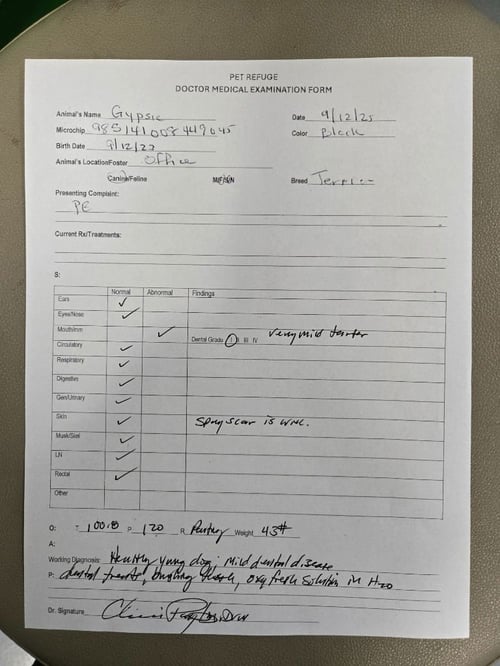 PET REFUGE
DOCTOR MEDICAL EXAMINATION FORM
Animal's Name Gypsie Date 9/12/25
Microchip 985141008449045 Color Black
Birth Date 9/12/23
Animal's Location/Foster Office
Canine/Feline M/F/S/N Breed Terrier
Presenting Complaint:
PE
Current Rx/Treatments:
S:
Normal Abnormal Findings
Ears ✓
Eyes/Nose ✓
Mouth/mm ✓ Dental Grade I II III IV very mild tarter
Circulatory ✓
Respiratory ✓
Digestive ✓
Gen/Urinary ✓
Skin ✓ Spay scar is WNL.
Musk/Skel ✓
LN ✓
Rectal ✓
Other
O: T 100.8 P 120 R Panting Weight 43#
A:
Working Diagnosis: Healthy young dog, mild dental disease
P: dental treats, brushing teeth, oxyfresh solution in H20
Dr. Signature